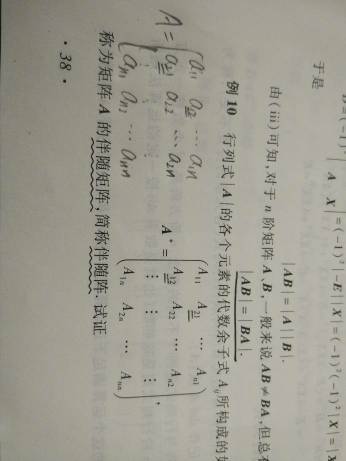 A X|=(-1)ⁿ|-E||X|=(-1)ⁿ(-1)ⁿ|X|=|X
于是
|AB|=|A||B|.
由(iii)可知,对于n阶矩阵A、B,一般来说AB≠BA,但总
|AB|=|BA|.
例10 行列式|A|的各个元素的代数余子式Aᵢⱼ所构成的
A₁₁ A₂₁ … Aₙ₁
A*= A₁₂ A₂₂ … Aₙ₂ ,
⋮ ⋮ ⋮
A₁ₙ A₂ₙ … Aₙₙ
A= a₁₁ a₁₂ … a₁ₙ
a₂₁ a₂₂ … a₂ₙ
⋮
aₙ₁ aₙ₂ … aₙₙ
称为矩阵A的伴随矩阵,简称伴随阵.试证
·38·